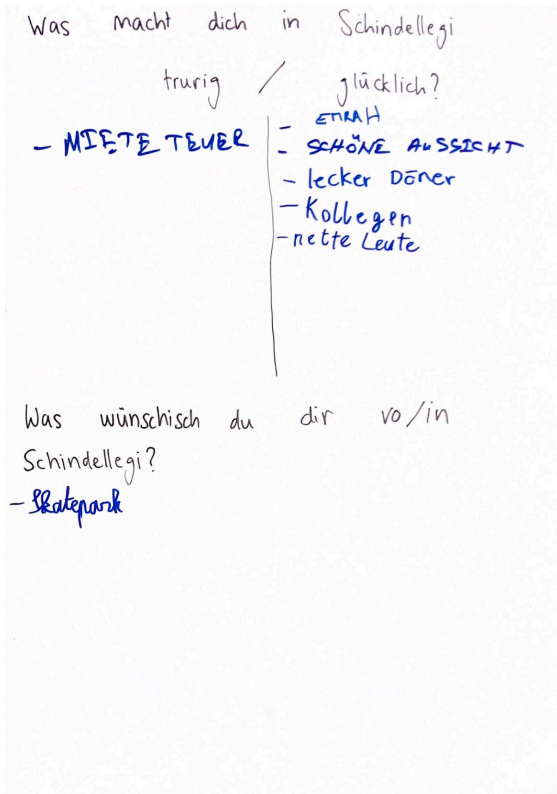 Was macht dich in Schindellegi
trurig / glücklich?
- MIETE TEUER
- EMRAH
- SCHÖNE AUSSICHT
- lecker Döner
- Kollegen
- nette Leute
Was wünschisch du dir vo/in
Schindellegi?
- Skatepark